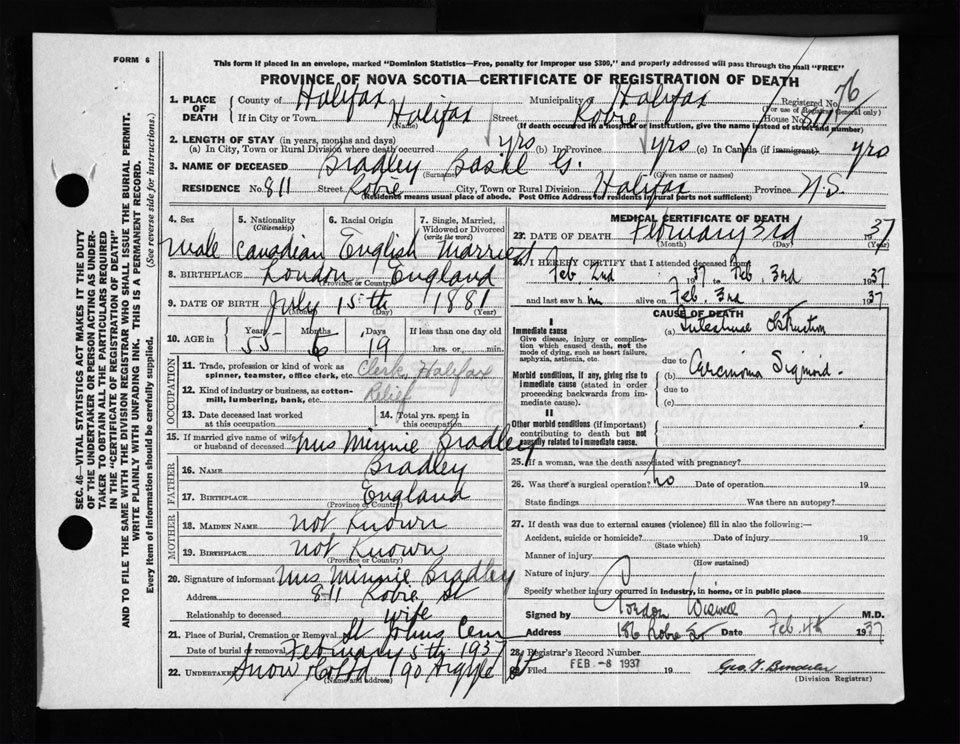 FORM 6
This form if placed in an envelope, marked "Dominion Statistics—Free, penalty for improper use $300," and properly addressed will pass through the mail "FREE"
PROVINCE OF NOVA SCOTIA—CERTIFICATE OF REGISTRATION OF DEATH
1. PLACE OF DEATH County of Halifax Municipality of Halifax Registered No. 76
(For use of Registrar General only)
If in City or Town Halifax Street Robie House No. 811
(Name) (If death occurred in a hospital or institution, give the name instead of street and number)
2. LENGTH OF STAY (in years, months and days)
(a) In City, Town or Rural Division where death occurred yrs (b) In Province yrs (c) In Canada (if immigrant) yrs
3. NAME OF DECEASED Bradley Basil G.
(Surname) (Given name or names)
RESIDENCE No. 811 Street Robie City, Town or Rural Division Halifax Province N.S
(Residence means usual place of abode. Post Office Address for residents in rural parts not sufficient)
4. Sex 5. Nationality (Citizenship) 6. Racial Origin 7. Single, Married, Widowed or Divorced (write the word)
male Canadian English Married
8. BIRTHPLACE London England
(Province or Country)
9. DATE OF BIRTH July 15th 1881
(Month) (Day) (Year)
10. AGE in Years Months Days If less than one day old
55 6 19 hrs. or min.
OCCUPATION
11. Trade, profession or kind of work as spinner, teamster, office clerk, etc. Clerk, Halifax
12. Kind of industry or business, as cotton-mill, lumbering, bank, etc. Relief
13. Date deceased last worked at this occupation
14. Total yrs. spent in this occupation
15. If married give name of wife or husband of deceased Mrs Minnie Bradley
FATHER
16. NAME Bradley
17. BIRTHPLACE England
(Province or Country)
MOTHER
18. MAIDEN NAME not Known
19. BIRTHPLACE not Known
(Province or Country)
20. Signature of informant Mrs Minnie Bradley
Address 811 Robie St
Relationship to deceased wife
21. Place of Burial, Cremation or Removal St Johns Cem
Date of burial or removal February 5th 1937
22. Undertaker Snow Co Ltd 190 Argyle St
(Name and address)
MEDICAL CERTIFICATE OF DEATH
23. DATE OF DEATH February 3rd 1937
(Month) (Day) (Year)
24. I HEREBY CERTIFY that I attended deceased from
Feb 2nd 1937 Feb. 3rd 1937
and last saw him alive on Feb. 3rd 1937
CAUSE OF DEATH
I
Immediate cause
Give disease, injury or complication which caused death, not the mode of dying, such as heart failure, asphyxia, asthenia, etc.
(a) Intestinal Obstruction
due to
Morbid conditions, if any, giving rise to immediate cause (stated in order proceeding backwards from immediate cause).
(b) Carcinoma Sigmoid.
due to
(c)
II
Other morbid conditions (if important) contributing to death but not causally related to immediate cause.
25. If a woman, was the death associated with pregnancy?
26. Was there a surgical operation? no Date of operation 19
State findings Was there an autopsy?
27. If death was due to external causes (violence) fill in also the following:—
Accident, suicide or homicide? Date of injury 19
(State which)
Manner of injury
(How sustained)
Nature of injury
Specify whether injury occurred in industry, in home, or in public place
Signed by Gordon Wiswell M.D.
Address 186 Robie St Date Feb. 4th 1937
28. Registrar's Record Number
Filed FEB - 8 1937 19
(Division Registrar)
SEC. 46—VITAL STATISTICS ACT MAKES IT THE DUTY
OF THE UNDERTAKER OR PERSON ACTING AS UNDERTAKER TO OBTAIN ALL THE PARTICULARS REQUIRED
IN THE "CERTIFICATE OF REGISTRATION OF DEATH"
AND TO FILE THE SAME WITH THE DIVISION REGISTRAR WHO SHALL ISSUE THE BURIAL PERMIT.
WRITE PLAINLY WITH UNFADING INK. THIS IS A PERMANENT RECORD.
Every item of information should be carefully supplied. (See reverse side for instructions.)